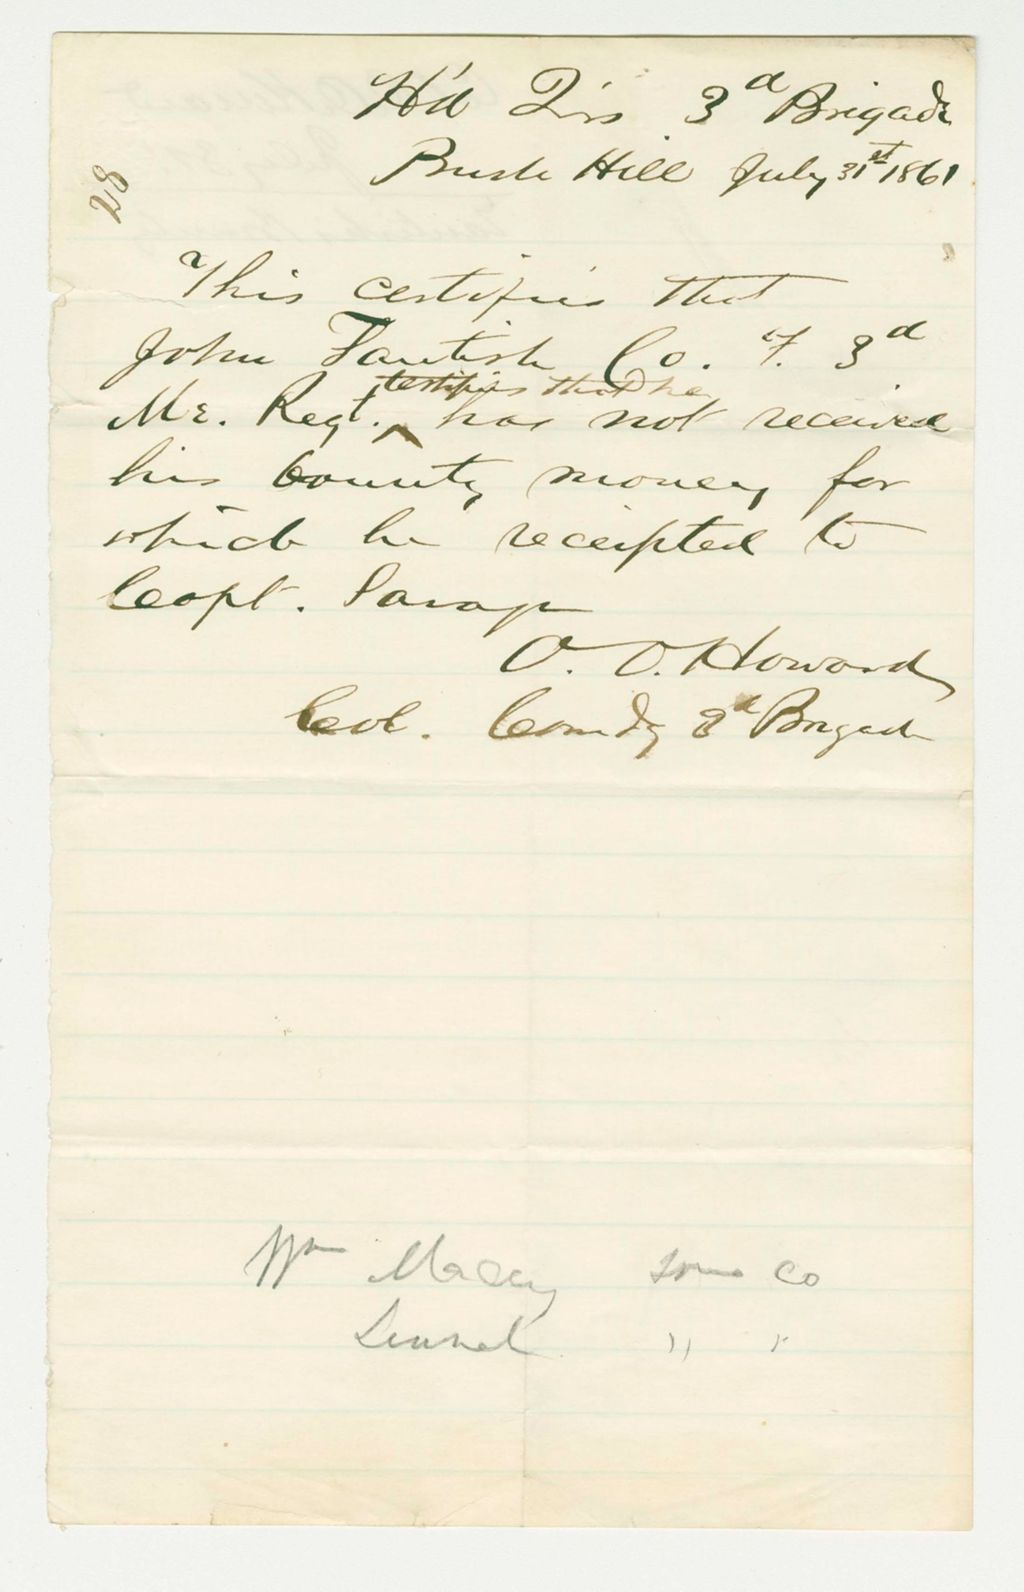 28
H'd Qrs 3d Brigade
Bush Hill July 31st 1861
This certifies that
John Fautish Co. F. 3d
testifies that he
Me. Regt. ^ has not received
his bounty money for
which he receipted to
Capt. Savage
O. O. Howard
Col. Comdg 3d Brigade
Wm Macey Same Co
Lemuel " "